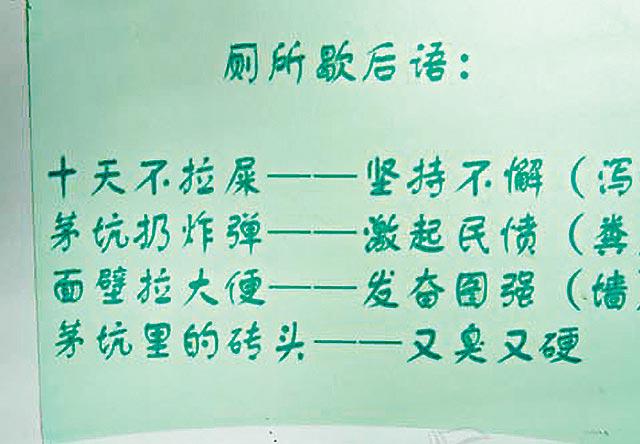 厕所歇后语：
十天不拉屎——坚持不懈（泻
茅坑扔炸弹——激起民愤（粪
面壁拉大便——发奋图强（墙
茅坑里的砖头——又臭又硬